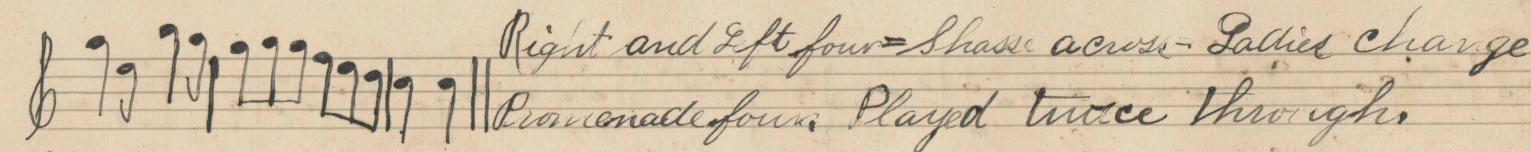 Right and Left four = Shasse across - Ladies change
Promenade four. Played twice through.